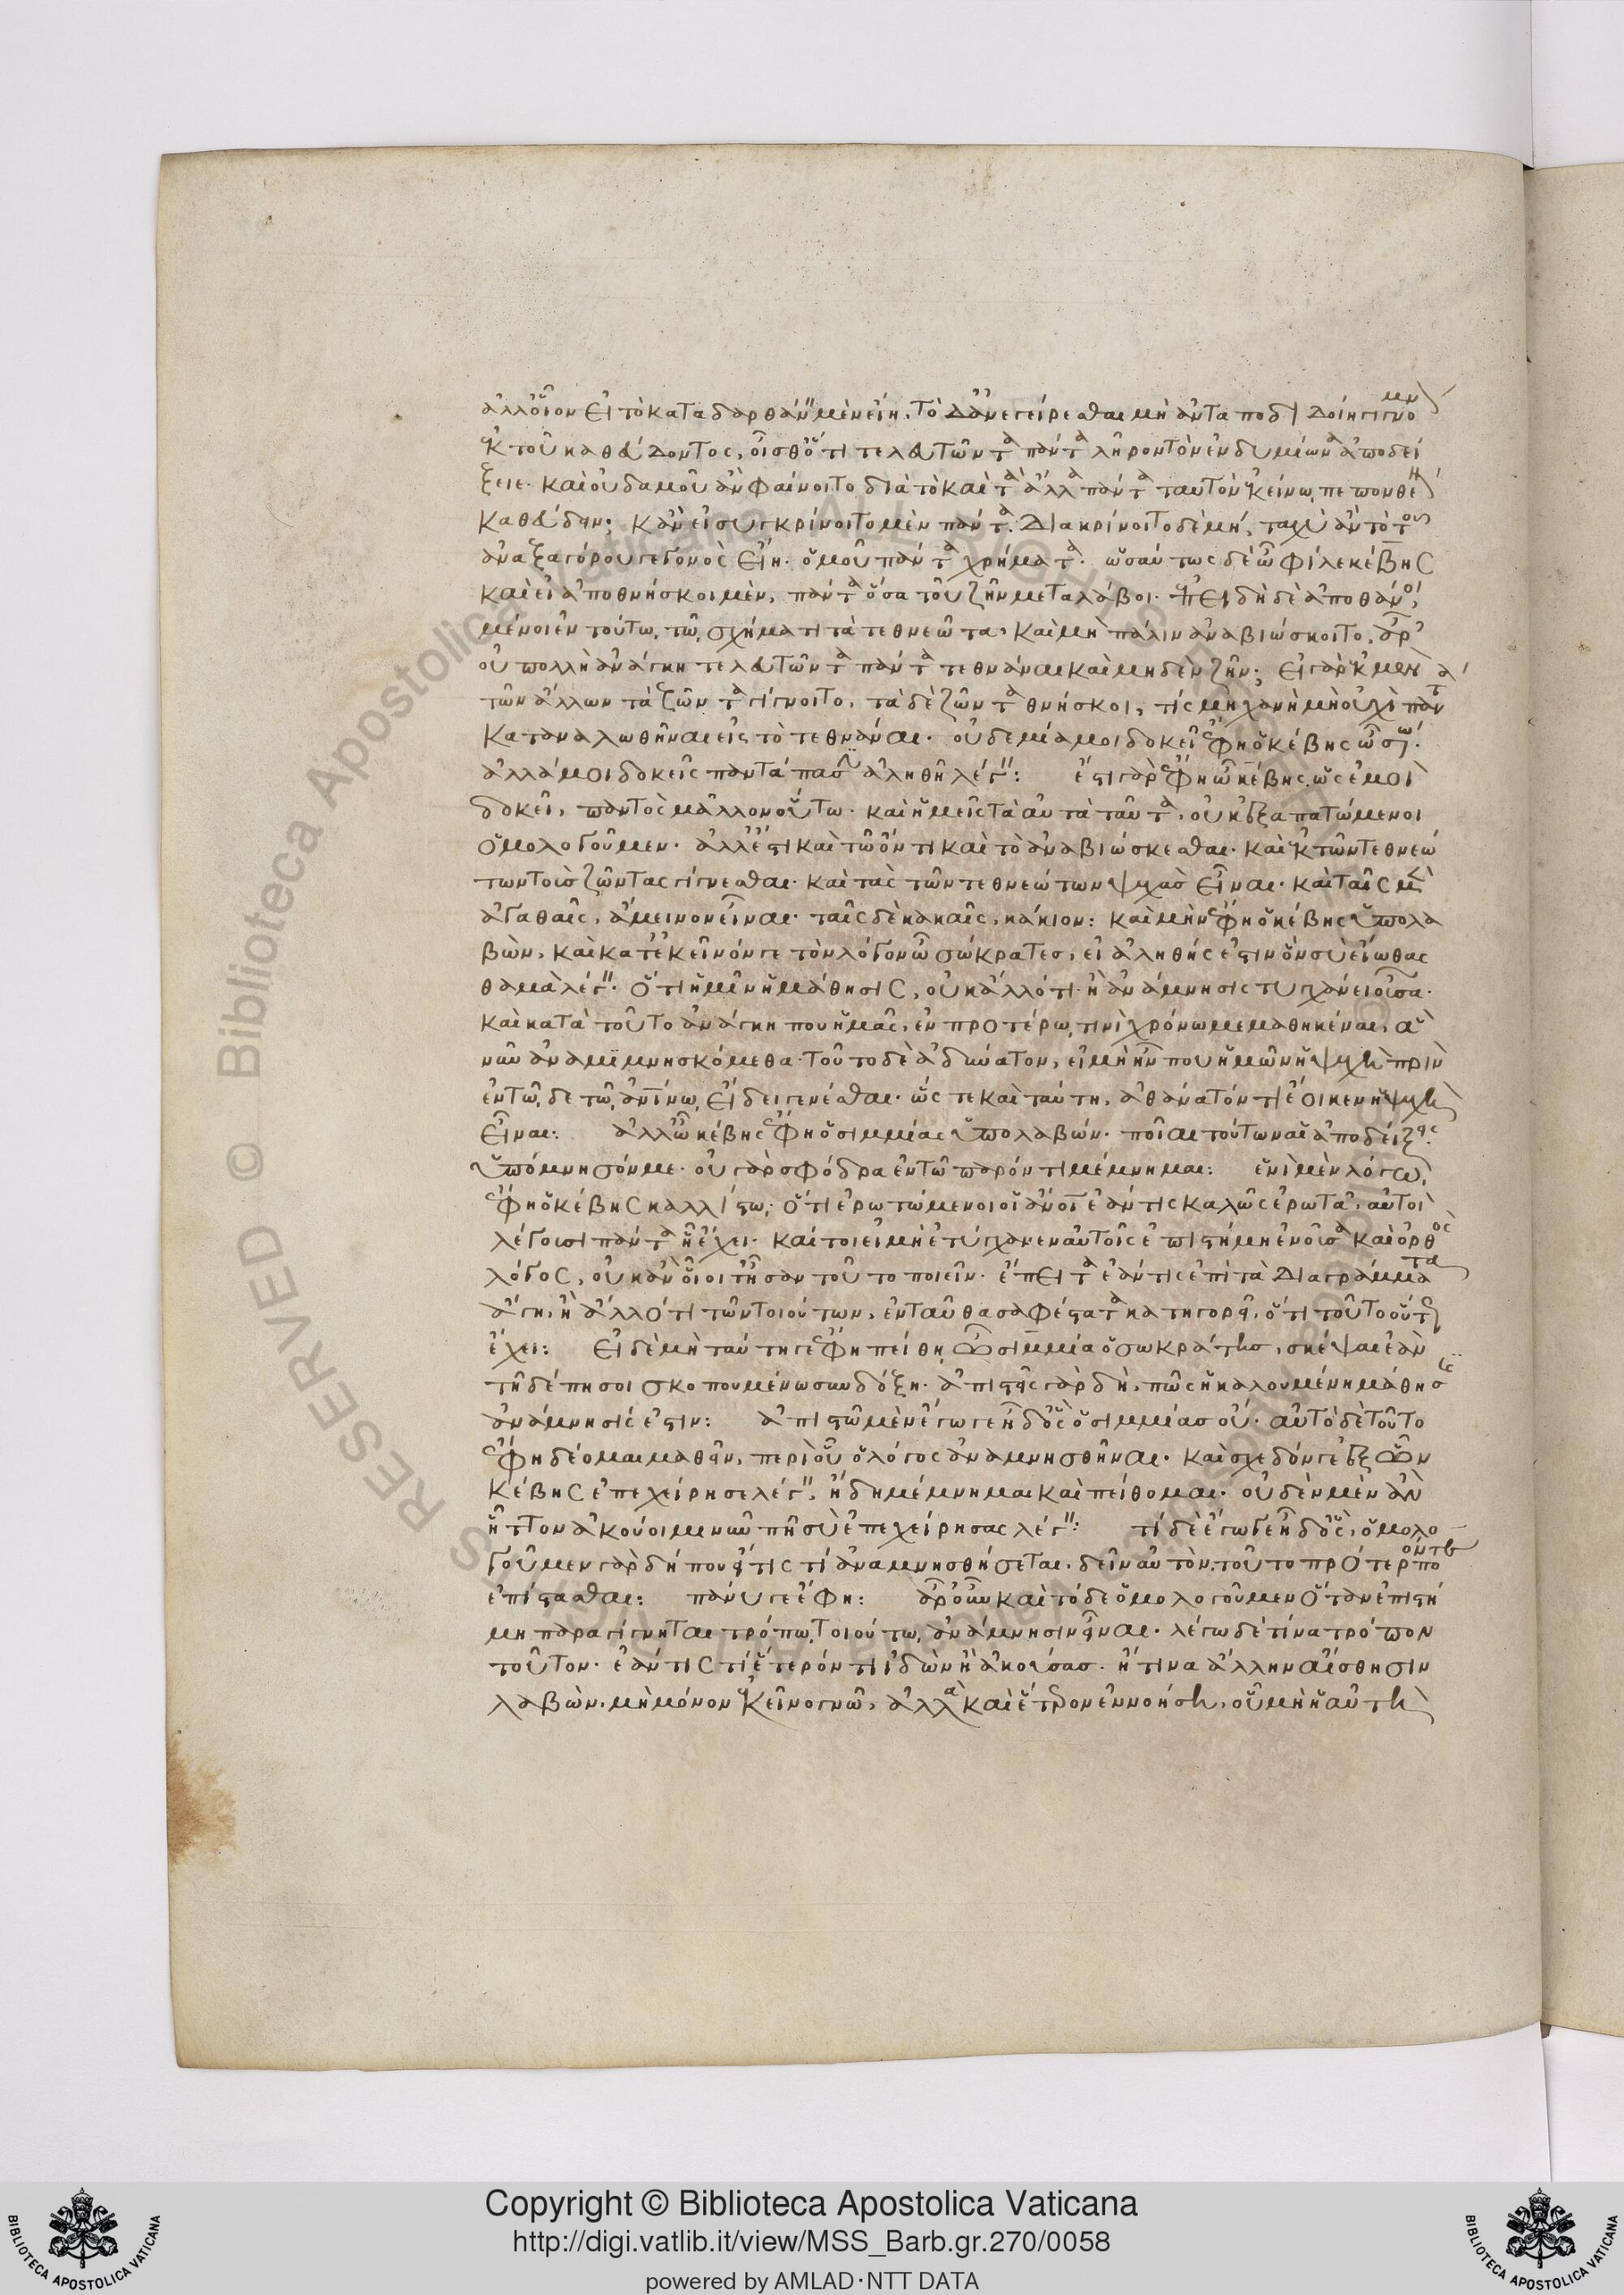 ἀλλ' οἷον εἰ τὸ καταδαρθάνειν μὲν εἴη. τὸ δ' ἀνεγείρεσθαι μὴ ἀνταποδιδοίη γιγνόμενον
ἐκ τοῦ καθεύδοντος, οἶσθ' ὅτι τελευτῶντα πάντα λῆρον τὸν ἐνδυμίωνα ἀποδεί
ξειε. καὶ οὐδαμοῦ ἂν φαίνοιτο διὰ τὸ καὶ τὰ ἄλλα πάντα ταυτὸν ἐκείνω πεπονθέναι
καθεύδειν; κἂν εἰ συγκρίνοιτο μὲν πάντα. διακρίνοιτο δὲ μή, ταχὺ ἂν τὸ τοῦ
ἀναξαγόρου γεγονὸς εἴη. ὁμοῦ πάντα χρήματα. ὡσαύτως δὲ ὦ φίλε κέβης
καὶ εἰ ἀποθνήσκοι μὲν, πάντα ὅσα τοῦ ζῆν μεταλάβοι. ἐπειδὴ δὲ ἀποθάνοι,
μένοι ἐν τούτω τῶ σχήματι τὰ τεθνεῶτα, καὶ μὴ πάλιν ἀναβιώσκοιτο, ἆρ'
οὐ πολλὴ ἀνάγκη τελευτῶντα πάντα τεθνάναι καὶ μηδὲν ζῆν; εἰ γὰρ ἐκ μὲν
τῶν ἄλλων τὰ ζῶντα γίγνοιτο, τὰ δὲ ζῶντα θνήσκοι, τίς μηχανὴ μὴ οὐχὶ πάντα
καταναλωθῆναι εἰς τὸ τεθνάναι. οὐδεμία μοι δοκεῖ ἔφη ὁ κέβης ὦ σώκρατες.
ἀλλά μοι δοκεῖς παντάπασιν ἀληθῆ λέγειν: ἔστι γὰρ ἔφη ὦ κέβης, ὡς ἐμοὶ
δοκεῖ, παντὸς μᾶλλον οὕτω. καὶ ἡμεῖς τὰ αὐτὰ ταῦτα, οὐκ ἐξαπατώμενοι
ὁμολογοῦμεν. ἀλλ' ἔστι καὶ τῶ ὄντι καὶ τὸ ἀναβιώσκεσθαι. καὶ ἐκ τῶν τεθνεώ
των τοὺς ζῶντας γίγνεσθαι. καὶ τὰς τῶν τεθνεώτων ψυχὰς εἶναι. καὶ ταῖς μὲν
ἀγαθαῖς, ἄμεινον εἶναι. ταῖς δὲ κακαῖς, κάκιον: καὶ μὴν ἔφη ὁ κέβης ὑπολα
βὼν, καὶ κατ' ἐκεῖνόν γε τὸν λόγον ὦ σώκρατες, εἰ ἀληθής ἐστιν ὃν σὺ εἴωθας
θαμὰ λέγειν. ὅτι ἡμῖν ἡ μάθησις, οὐκ ἄλλό τι ἢ ἀνάμνησις τυγχάνει οὖσα.
καὶ κατὰ τοῦτο ἀνάγκη που ἡμᾶς, ἐν προτέρω τινὶ χρόνω μεμαθηκέναι, ἃ
νῦν ἀναμιμνησκόμεθα. τοῦτο δὲ ἀδύνατον, εἰ μὴ ἦν που ἡμῶν ἡ ψυχὴ πρὶν
ἐν τῶδε τῶ ἀνθρωπίνω εἴδει γενέσθαι. ὥστε καὶ ταύτη, ἀθάνατόν τι ἔοικεν ἡ ψυχὴ
εἶναι: ἀλλ' ὦ κέβης ἔφη ὁ σιμμίας ὑπολαβών. ποῖαι τούτων αἱ ἀποδείξεις.
ὑπόμνησόν με. οὐ γὰρ σφόδρα ἐν τῶ παρόντι μέμνημαι: ἑνὶ μὲν λόγω
ἔφη ὁ κέβης καλλίστω. ὅτι ἐρωτώμενοι οἱ ἄνθρωποι ἐάν τις καλῶς ἐρωτᾶ, αὐτοὶ
λέγουσι πάντα ἧ ἔχει. καίτοι εἰ μὴ ἐτύγχανεν αὐτοῖς ἐπιστήμη ἐνοῦσα καὶ ὀρθὸς
λόγος, οὐκ ἂν οἷοί τ' ἦσαν τοῦτο ποιεῖν. ἔπειτα ἐάν τις ἐπὶ τὰ διαγράμματα
ἄγη, ἢ ἄλλό τι τῶν τοιούτων, ἐνταῦθα σαφέστατα κατηγορεῖ, ὅτι τοῦτο οὕτως
ἔχει: εἰ δὲ μὴ ταύτη γε ἔφη πείθη ὦ σιμμία ὁ σωκράτης, σκέψαι ἐὰν
τῆδέ πη σοι σκοπουμένω συνδόξη. ἀπιστεῖς γὰρ δὴ, πῶς ἡ καλουμένη μάθησις
ἀνάμνησίς ἐστιν: ἀπιστῶ μὲν ἔγωγε ἦ δ' ὃς ὁ σιμμίας οὔ. αὐτὸ δὲ τοῦτο
ἔφη δέομαι μαθεῖν, περὶ οὗ ὁ λόγος ἀναμνησθῆναι. καὶ σχεδόν γε ἐξ ὧν
κέβης ἐπεχείρησε λέγειν, ἤδη μέμνημαι καὶ πείθομαι. οὐδὲν μὲν ἂν
ἧττον ἀκούοιμι νῦν πῆ σὺ ἐπεχείρησας λέγειν: τί δὲ ἔγωγε ἦ δ' ὃς, ὁμολο
γοῦμεν γὰρ δήπου εἴ τις τί ἀναμνησθήσεται, δεῖν αὐτὸν τοῦτο πρότερόν ποτε
ἐπίστασθαι: πάνυ γε ἔφη: ἆρ' οὖν καὶ τόδε ὁμολογοῦμεν ὅταν ἐπιστή
μη παραγίγνηται τρόπω τοιούτω, ἀνάμνησιν εἶναι. λέγω δὲ τίνα τρόπον
τοῦτον. ἐάν τίς τί ἕτερόν τι ἰδὼν ἢ ἀκούσας. ἤ τινα ἄλλην αἴσθησιν
λαβὼν, μὴ μόνον ἐκεῖνο γνῶ, ἀλλὰ καὶ ἕτερον ἐννοήση, οὗ μὴ ἡ αὐτὴ
Copyright © Biblioteca Apostolica Vaticana
http://digi.vatlib.it/view/MSS_Barb.gr.270/0058
powered by AMLAD·NTT DATA
BIBLIOTECA APOSTOLICA VATICANA
BIBLIOTECA APOSTOLICA VATICANA